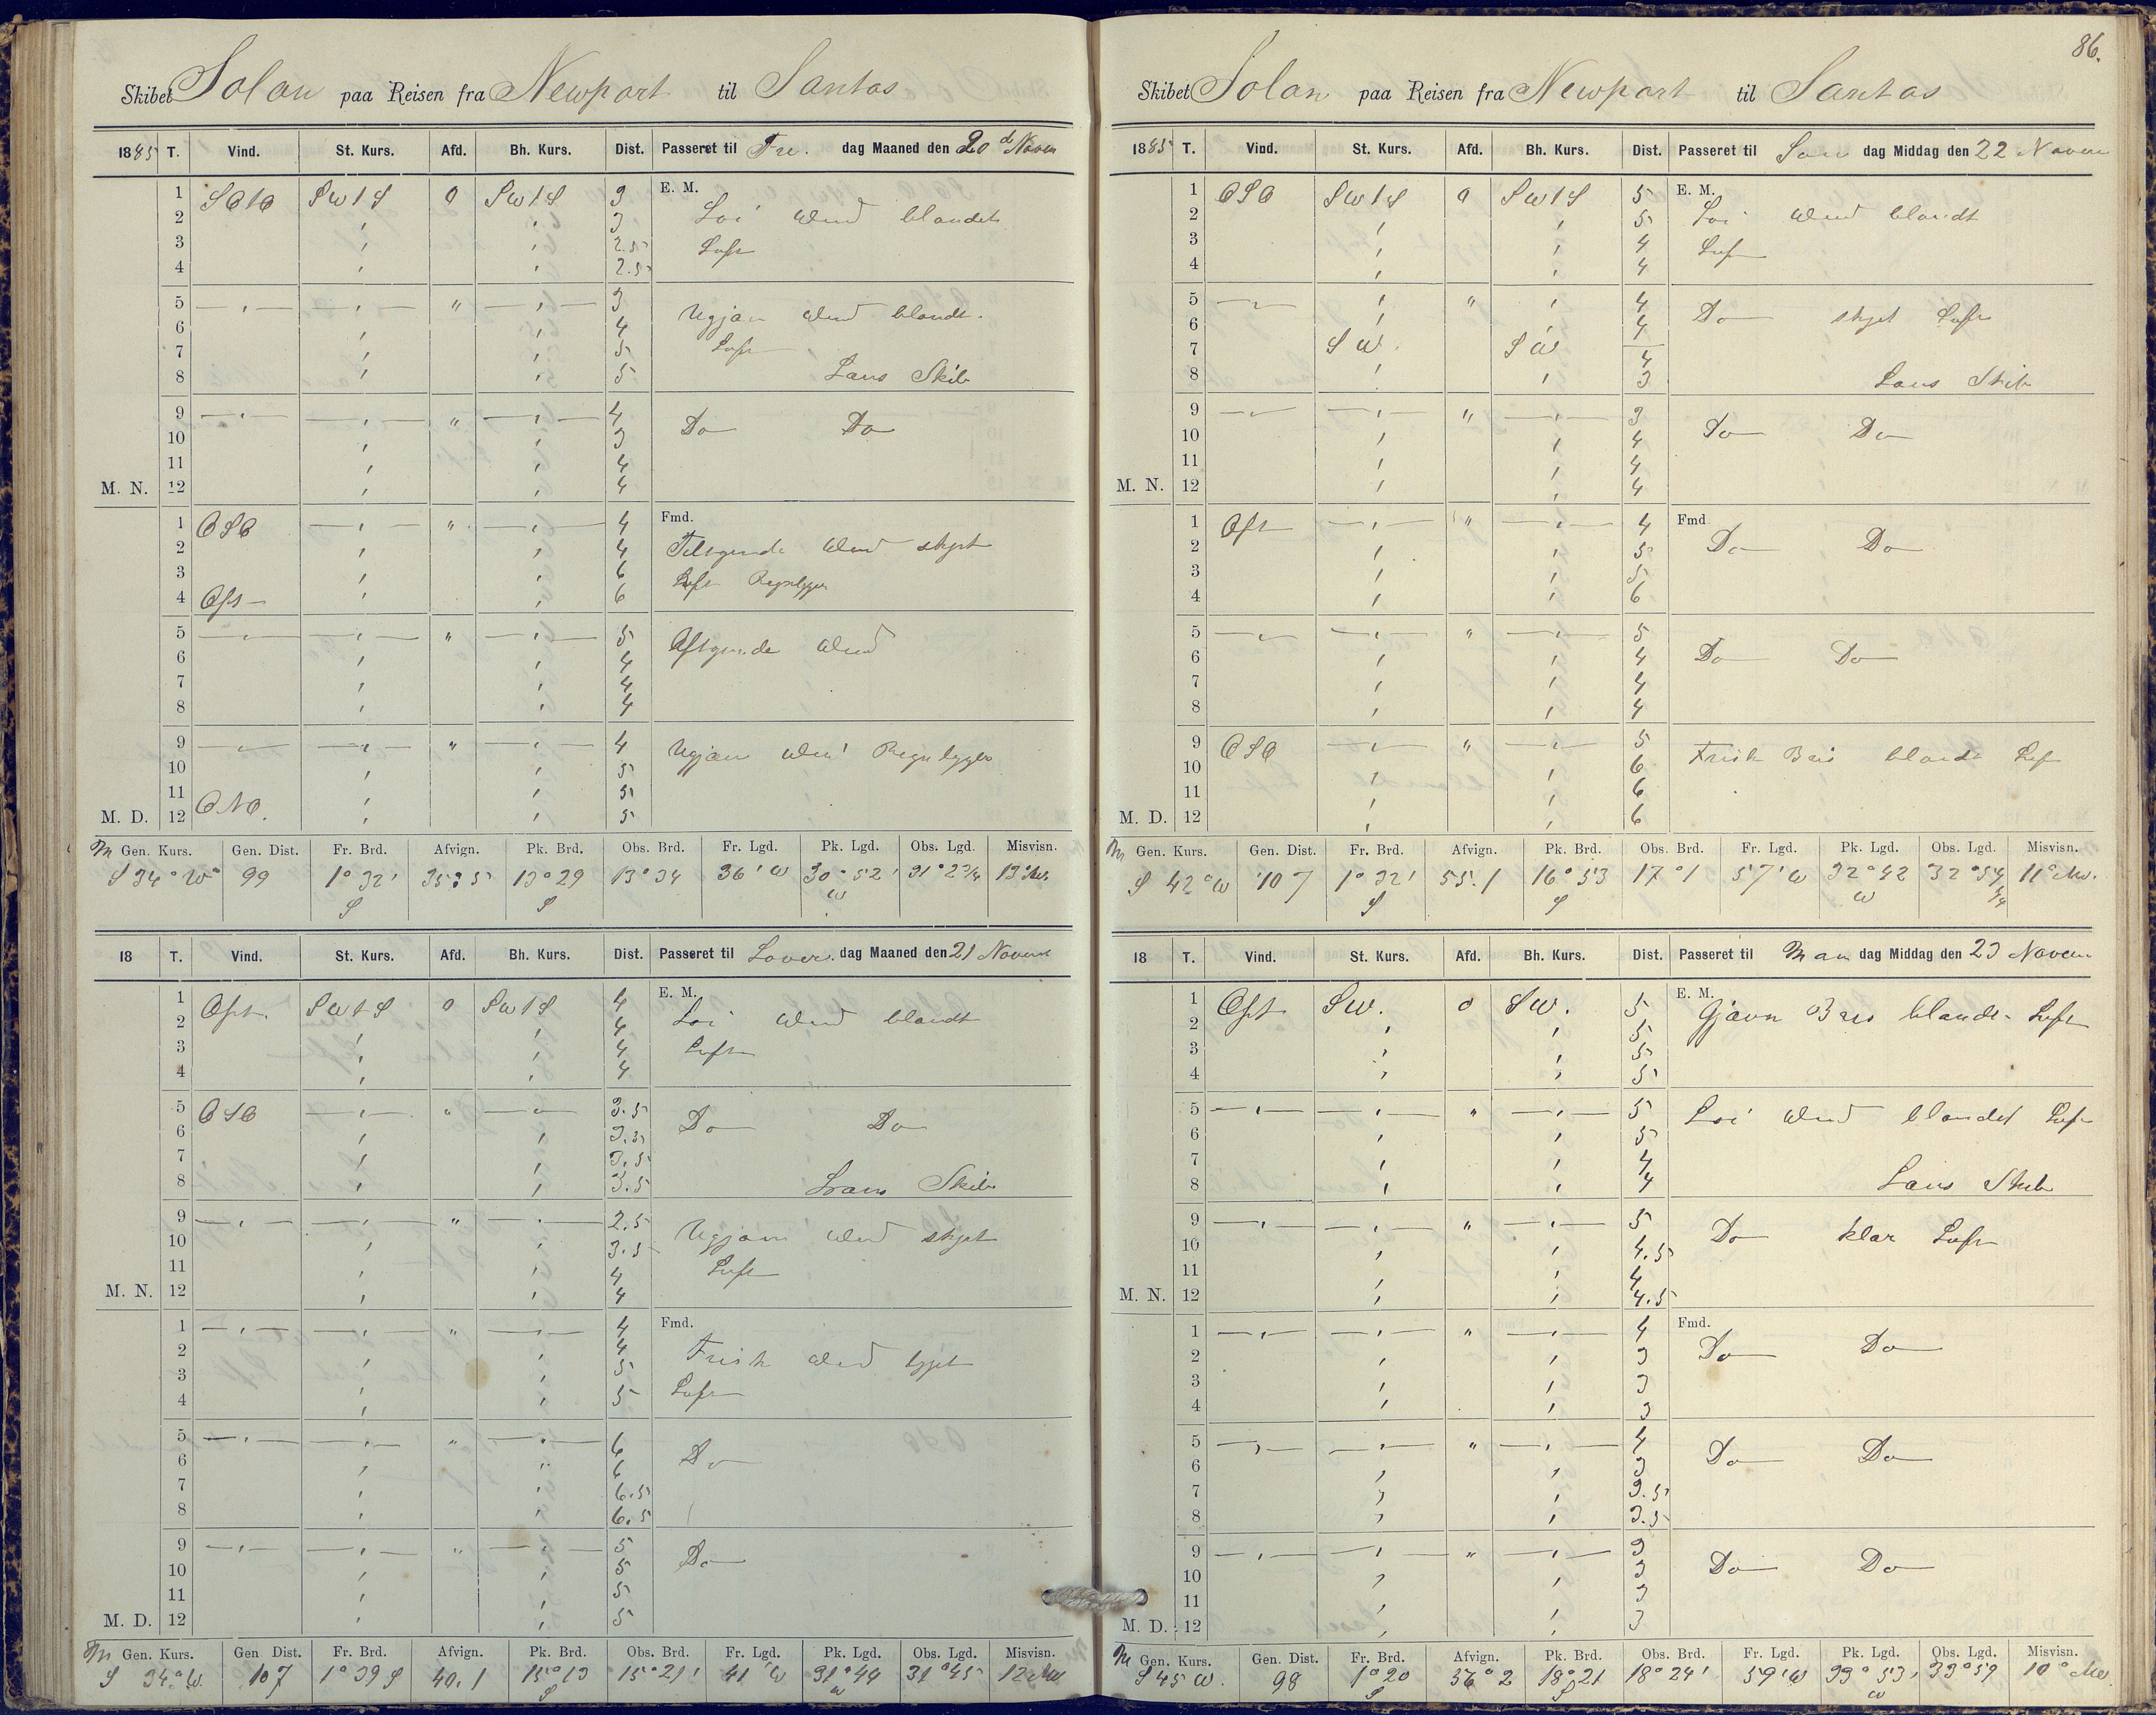 Skibet Solon paa Reisen fra Newport til Santos
1885 T. Vind. St. Kurs. Afd. Bh. Kurs. Dist. Passeret til Fre. dag Maaned den 20d Novem
E. M.
1 SOtO SWtS 0 SWtS 3
2 " " 3 Loi Vind blandet
3 " " 2.5 Luft
4 " " 2.5
5 — " — — " — " — " — 3
6 " " 4 Ugjævn Vind blandt.
7 " " 5 Luft
8 " " 5 Lans Skib
9 — " — — " — " — " — 4
10 " " 3 Do Do
11 " " 4
M. N. 12 " " 4
Fmd.
1 OSO — " — " — " — 4
2 " " 4 Tiltagende Vind skyet
3 " " 6 Luft Regnbyger
4 Ost " " 6
5 — " — — " — " — " — 5 Aftagende Vind
6 " " 4
7 " " 4
8 " " 4
9 — " — — " — " — " — 4 Ugjævn Vind Regnbyger
10 " " 5
11 " " 5
M. D. 12 ONO. " " 5
M Gen. Kurs. Gen. Dist. Fr. Brd. Afvign. Pk. Brd. Obs. Brd. Fr. Lgd. Pk. Lgd. Obs. Lgd. Misvisn.
S 34° W 99 1° 32' S 13° 29 S 13° 34 36' W 30° 52' W 13°
18 T. Vind. St. Kurs. Afd. Bh. Kurs. Dist. Passeret til Lover. dag Maaned den 21 Novem
E. M.
1 Ost. SWtS 0 SWtS 4
2 " " 4 Loi Vind blandt
3 " " 4 Luft
4 " " 4
5 OSO — " — " — " — 3.5
6 " " 3.5 Do Do
7 " " 3.5
8 " " 3.5 Lans Skib
9 — " — — " — " — " — 2.5
10 " " 3.5 Ugjævn Vind skyet
11 " " 4 Luft
M. N. 12 " " 4
Fmd.
1 — " — — " — " — " — 4
2 " " 4 Frisk Vind byget
3 " " 5
4 " " 5 Luft
5 — " — — " — " — " — 6
6 " " 6 Do
7 " " 6.5
8 " " 6.5
9 — " — — " — " — " — 5
10 " " 5 Do
11 " " 5
M. D. 12 " " 5
M Gen. Kurs. Gen Dist. Fr. Brd. Afvign. Pk. Brd. Obs. Brd. Fr. Lgd. Pk. Lgd. Obs. Lgd. Misvisn.
S 34° W. 107 1° 39 S 40.1 15° 13 S 15° 21' 41' W 31° 44 W 31° 45 12
86.
Skibet Solon paa Reisen fra Newport til Santos
1885 T. Vind. St. Kurs. Afd. Bh. Kurs. Dist. Passeret til Søn dag Middag den 22 Novem
E. M.
1 OSO SWtS 0 SWtS 5
2 " " 5 Loi Vind blandt
3 " " 4 Luft
4 " " 4
5 — " — " " " 4
6 " " 4 Do skyet Luft
7 SW. SW 4
8 " " 3 Lans Skib
9 — " — — " — " — " — 3
10 " " 4 Do Do
11 " " 4
M. N. 12 " " 4
Fmd.
1 Ost — " — " — " — 4
2 " " 5 Do Do
3 " " 5
4 " " 6
5 — " — — " — " — " — 5
6 " " 4 Do Do
7 " " 4
8 " " 4
9 OSO — " — " — " — 5 Frisk Bris blandt Luft
10 " " 6
11 " " 6
M. D. 12 " " 6
M Gen. Kurs. Gen. Dist. Fr. Brd. Afvign. Pk. Brd. Obs. Brd. Fr. Lgd. Pk. Lgd. Obs. Lgd. Misvisn.
S 42° W 107 1° 32' S 55.1 16° 53 S 17° 1 57' W 32° 42 W 32° 54 11°
18 T. Vind. St. Kurs. Afd. Bh. Kurs. Dist. Passeret til Man dag Middag den 23 Novem
E. M.
1 Ost SW. 0 SW. 5 Gjævn Bris blandt Luft
2 " " 5
3 " " 5
4 " " 5
5 — " — — " — " — " — 5 Loi Vind blandet Luft
6 " " 5
7 " " 4
8 " " 4 Lans Skib
9 — " — — " — " — " — 5
10 " " 4.5 Do klar Luft
11 " " 4
M. N. 12 " " 4.5
Fmd.
1 — " — — " — " — " — 4
2 " " 3 Do Do
3 " " 3
4 " " 3
5 — " — — " — " — " — 4
6 " " 3 Do Do
7 " " 3.5
8 " " 3.5
9 — " — — " — " — " — 3
10 " " 3 Do Do
11 " " 3
M. D. 12 " " 3
M Gen. Kurs. Gen. Dist Fr. Brd. Afvign. Pk. Brd. Obs. Brd. Fr. Lgd. Pk. Lgd. Obs. Lgd. Misvisn.
S 45 W. 98 1° 20 S 18° 21 S 18° 24' 59' W 33° 53' W 33° 59 10°